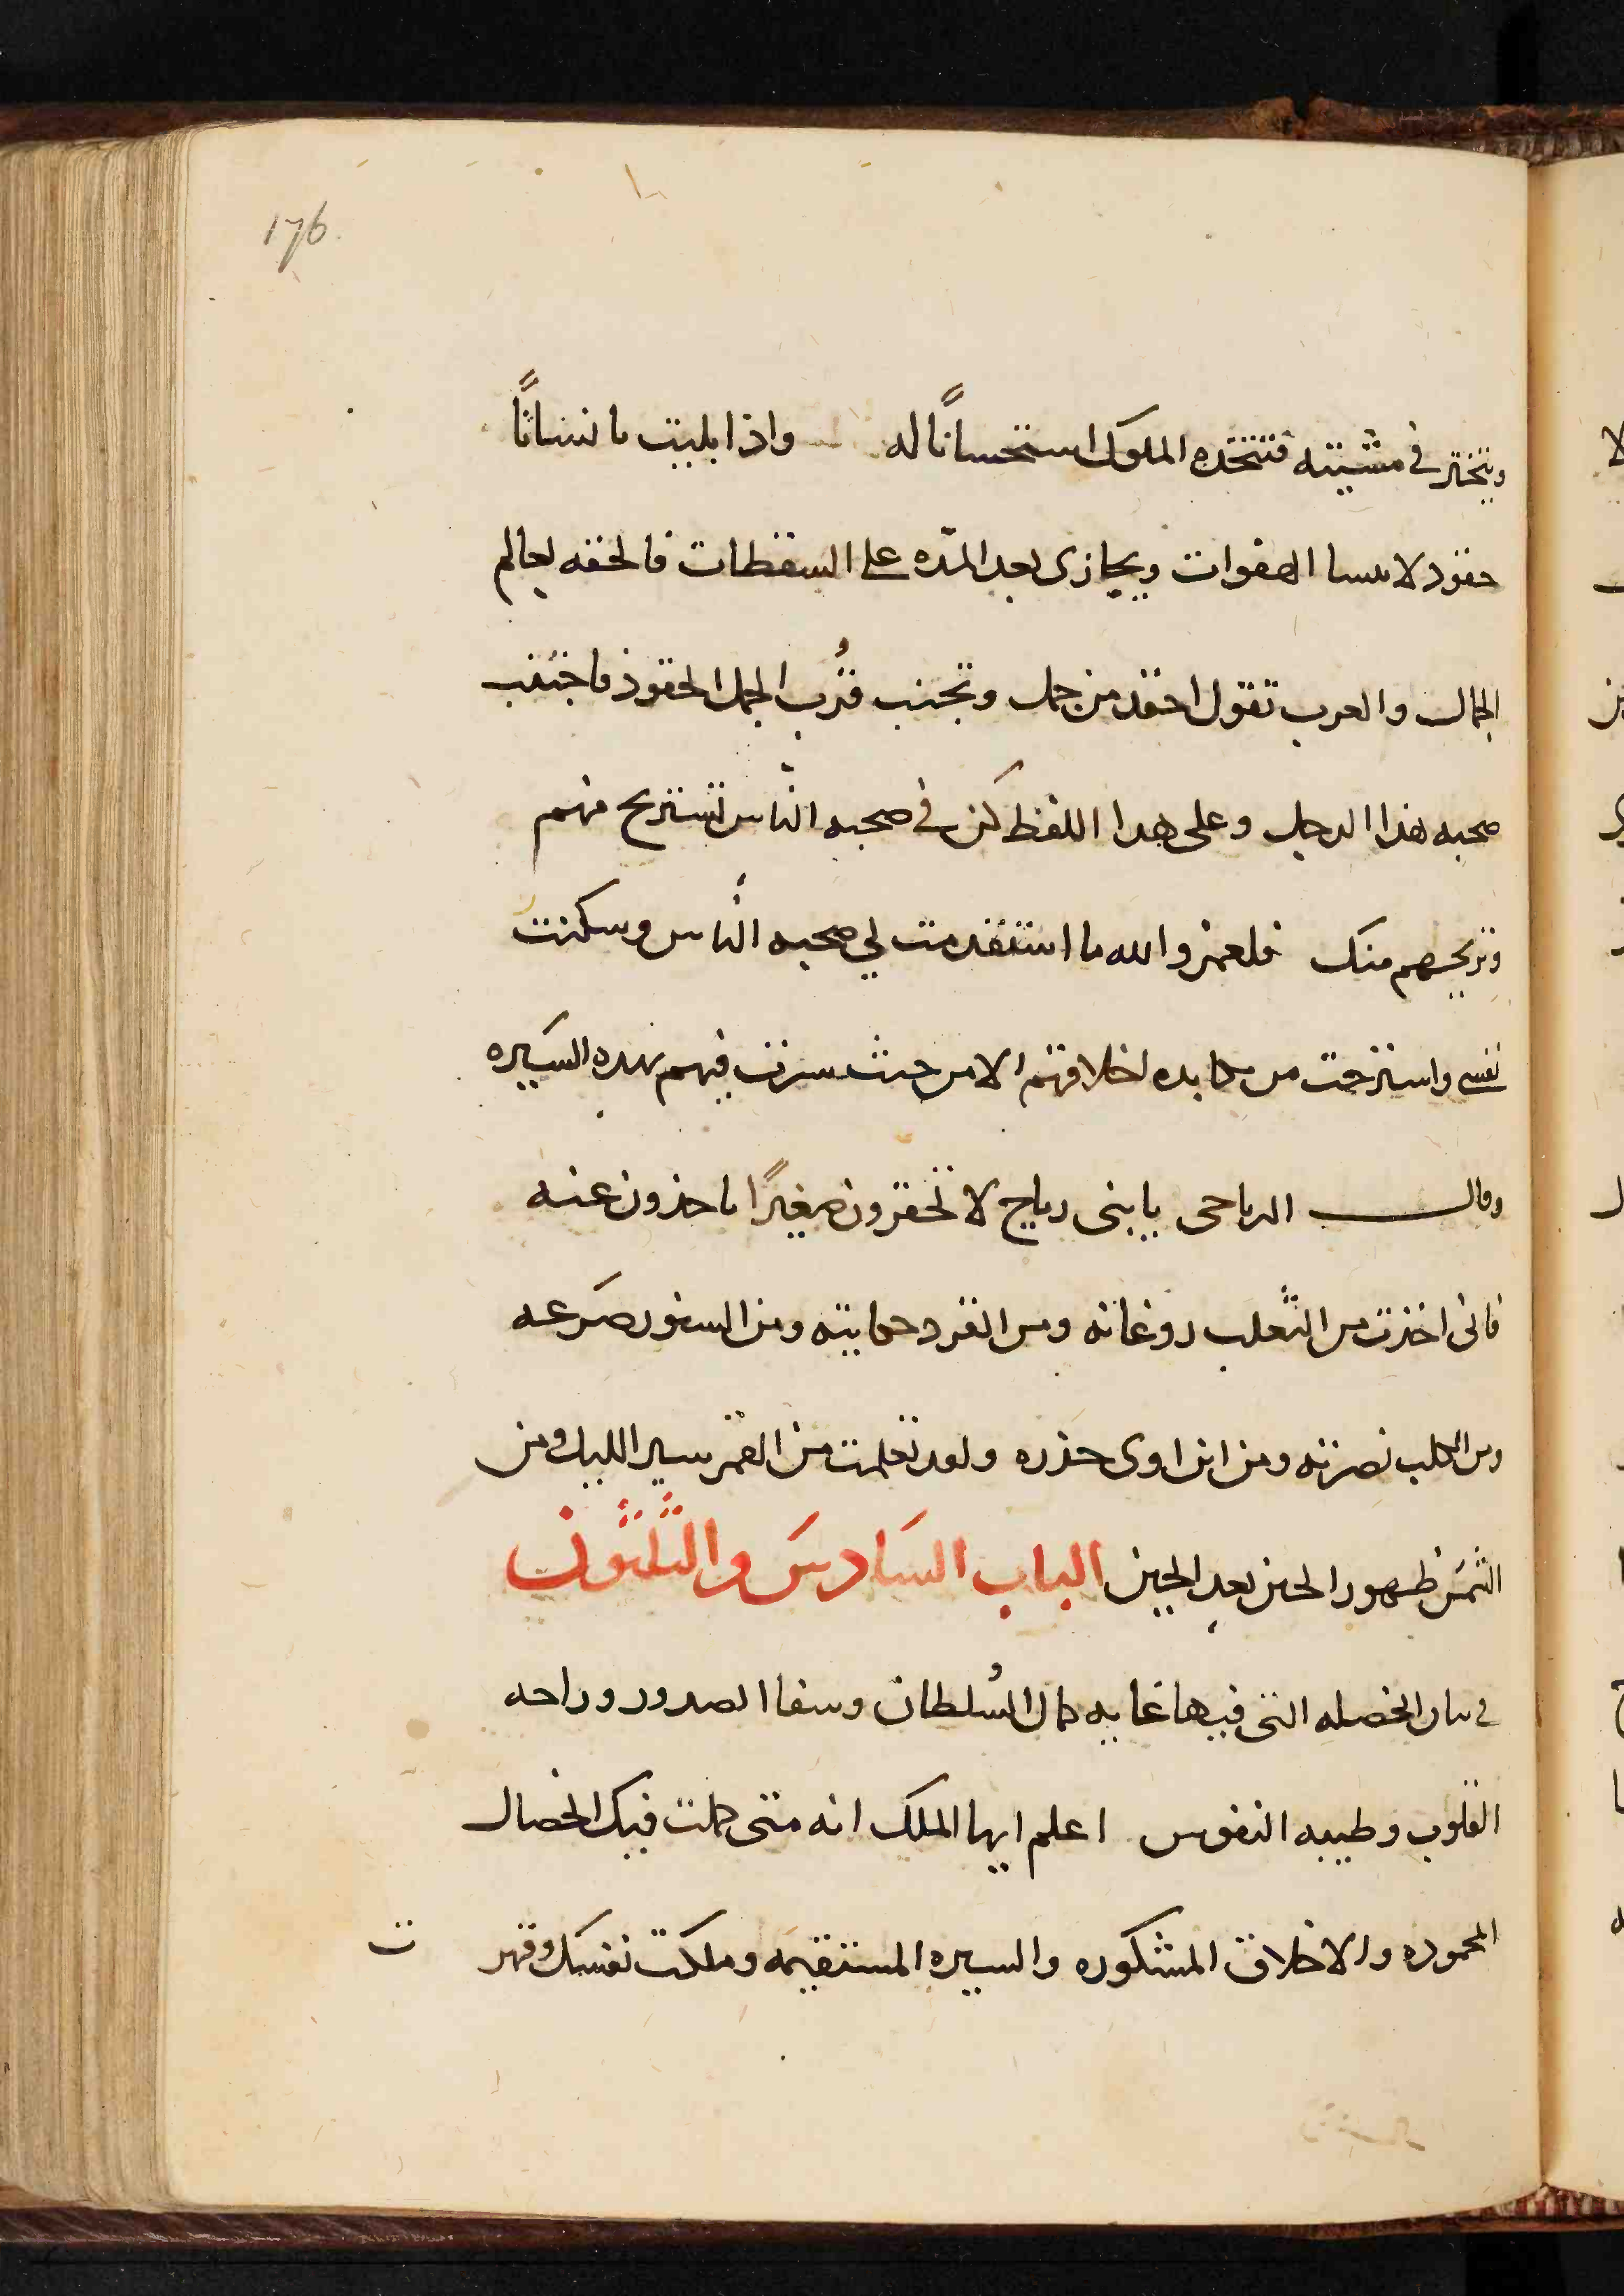 176
ويتبختر في مشيته فتتخذه الملوك استحسانًا له واذا بليت بانسانًا
حقود لا ينسا الهفوات ويجازى بعد المدّه على السقطات فالحقه بعالم
الجمال والعرب تقول احقد من جمل وتجنب قُرب الجمل الحقود فاجتنب
صحبه هذا الرجل وعلى هدا اللفظ كن في صحبه الناس تستريح منهم
وتريحهم منك فلعمر والله ما استقدمت لي صحبه الناس وسكنت
نفسي واسترحت من مكابده اخلاقهم الا من حيث سرت فيهم بهده السيره
وقال الرياحى يا بنى رياح لا تحقرون صغيرًا ياخذون عنه
فانى اخذت من الثعلب روغانه ومن القرد حكايته ومن السنور ضرعه
ومن الكلب نصرته ومن ابن اوى حذره ولقد تعلمت من القمر سير الليل ومن
الشمس ظهور الحين بعد الحين الباب السَادسَ والثلثون
في بيان الخصله التى فيها غايه كمال السُلطان وشفا الصدور وراحه
القلوب وطيبه النفوس اعلم ايها الملك انه متى كملت فيك الخصال
المحموده والاخلاق المشكوره والسيره المستقيمه وملكت نفسك وقهر ت